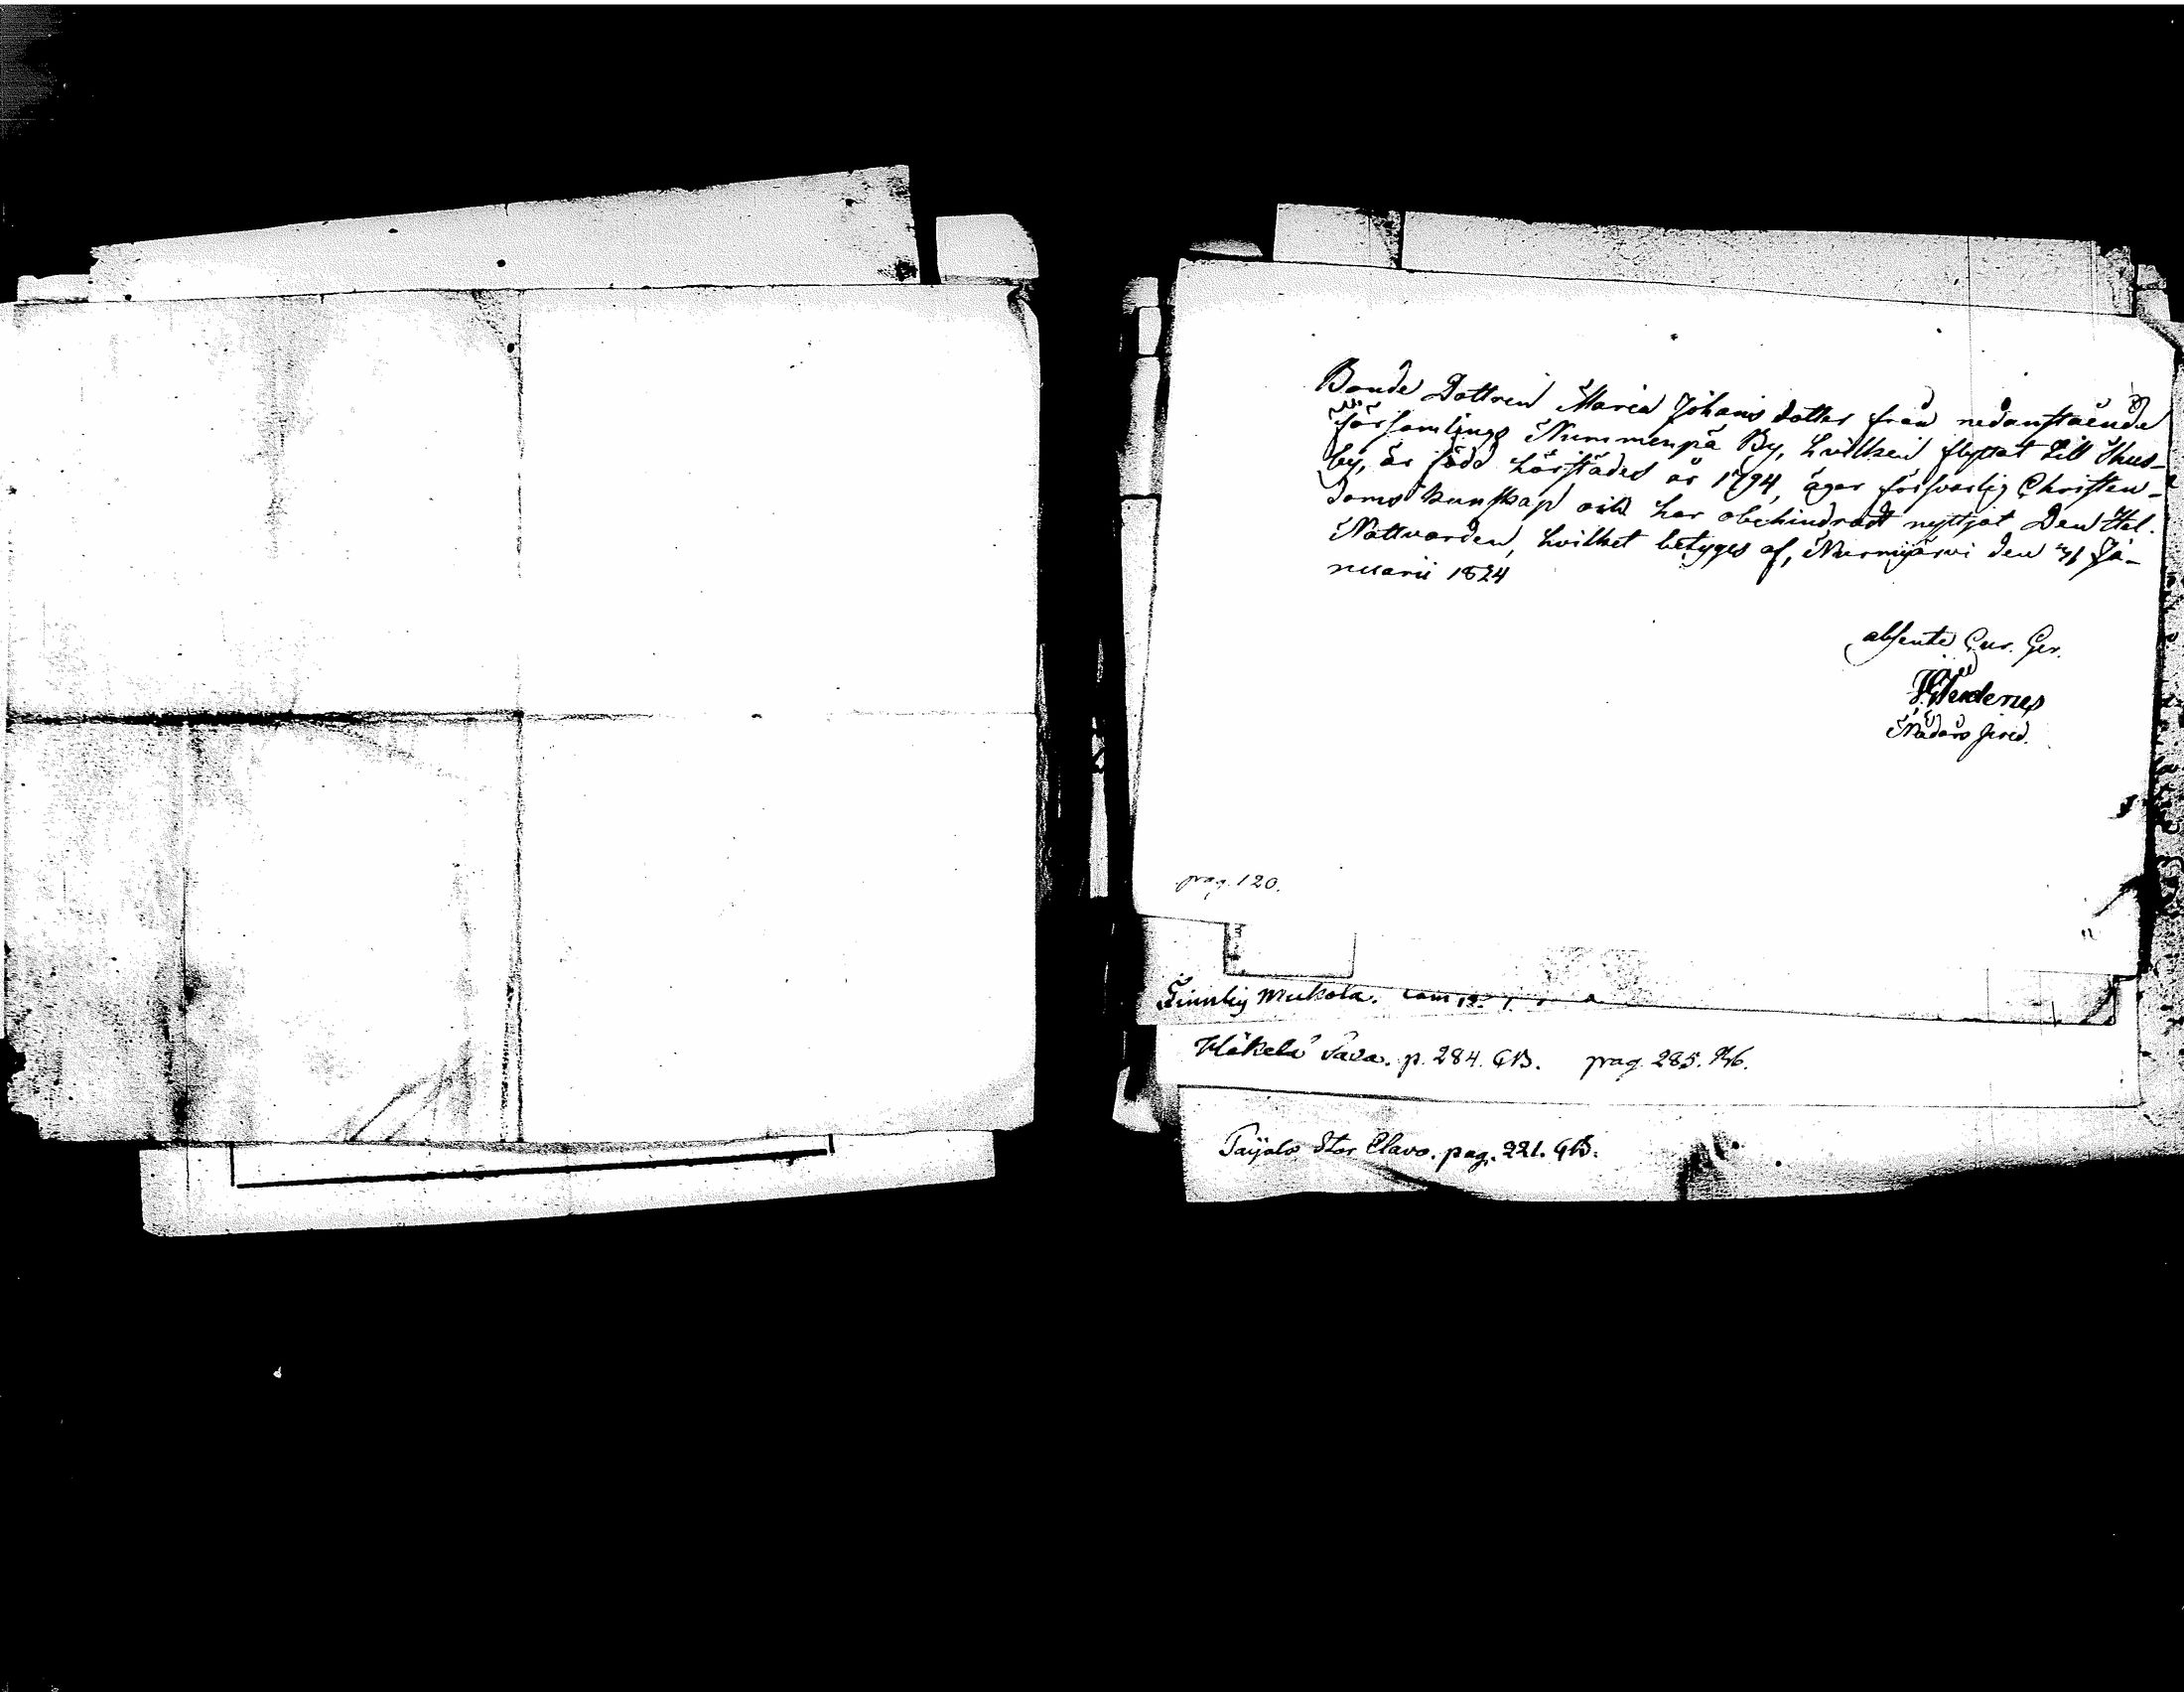 Bonde Dottren Maria Johans dotter från nedanstående
församlings Nummenpä By, hvilken flyttat till Thus-
by, är född härstädes år 1794, äger försvarlig Christen-
doms kunskap och har obehindradt nyttjat Den Hel.
Nattvarden, hvilket betyges af, Nurmijärvi den Ja-
nuarii 1824
absente Cur. Ger.
Nådårs pred.
pag. 120.
Finnby Mukola.
p. 284. GB. pag. 285.
Paijalo Stor Clavo. pag. 221. GB.